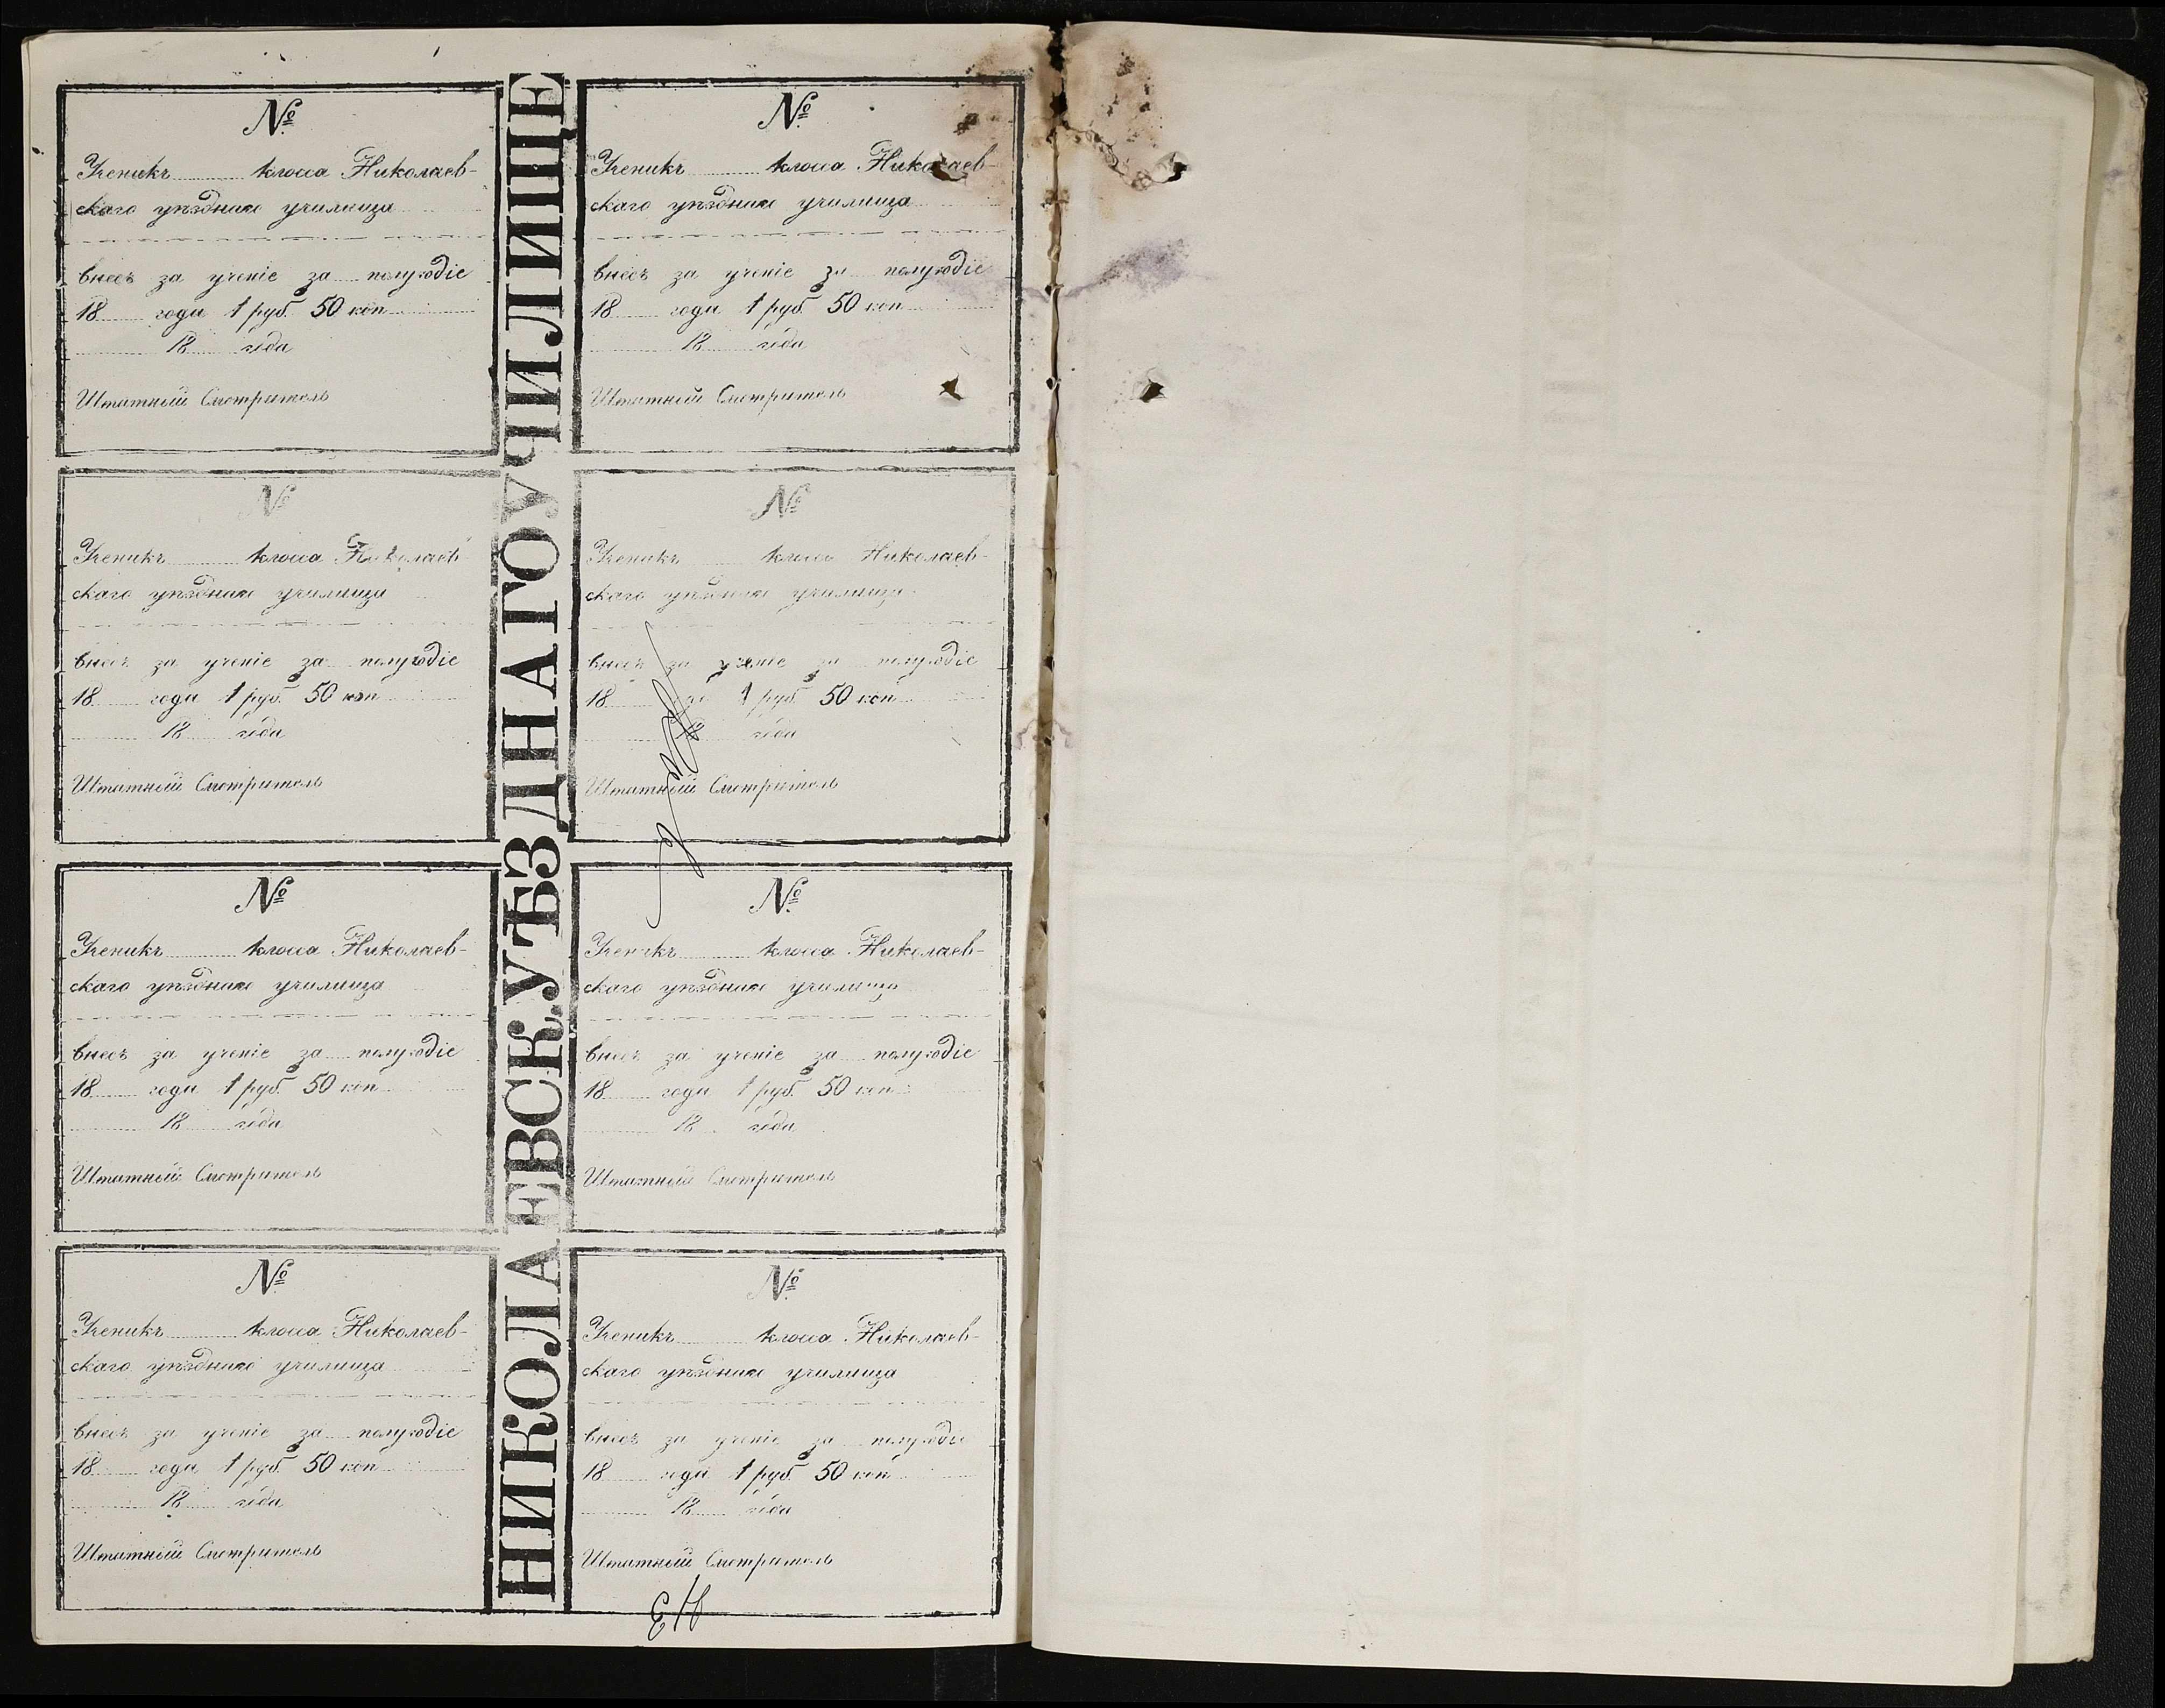 №
Ученикъ класса Николаев-
скаго уѣзднаго училища
внесъ за ученіе за полугодіе
18 года 1 руб. 50 коп
18 года
Штатный Смотритель
№
Ученикъ класса Николаев-
скаго уѣзднаго училища
внесъ за ученіе за полугодіе
18 года 1 руб. 50 коп
18 года
Штатный Смотритель
№
Ученикъ класса Николаев-
скаго уѣзднаго училища
внесъ за ученіе за полугодіе
18 года 1 руб. 50 коп
18 года
Штатный Смотритель
№
Ученикъ класса Николаев-
скаго уѣзднаго училища
внесъ за ученіе за полугодіе
18 года 1 руб. 50 коп
18 года
Штатный Смотритель
НИКОЛАЕВСК. УѢЗДНАГО УЧИЛИЩЕ
№
Ученикъ класса Николаев-
скаго уѣзднаго училища
внесъ за ученіе за полугодіе
18 года 1 руб. 50 коп
18 года
Штатный Смотритель
№
Ученикъ класса Николаев-
скаго уѣзднаго училища
внесъ за ученіе за полугодіе
18 1 руб. 50 коп
18 года
Штатный Смотритель
№
Ученикъ класса Николаев-
скаго уѣзднаго училища
внесъ за ученіе за полугодіе
18 года 1 руб. 50 коп
18 года
Штатный Смотритель
№
Ученикъ класса Николаев-
скаго уѣзднаго училища
внесъ за ученіе за полугодіе
18 года 1 руб. 50 коп
18 года
Штатный Смотритель